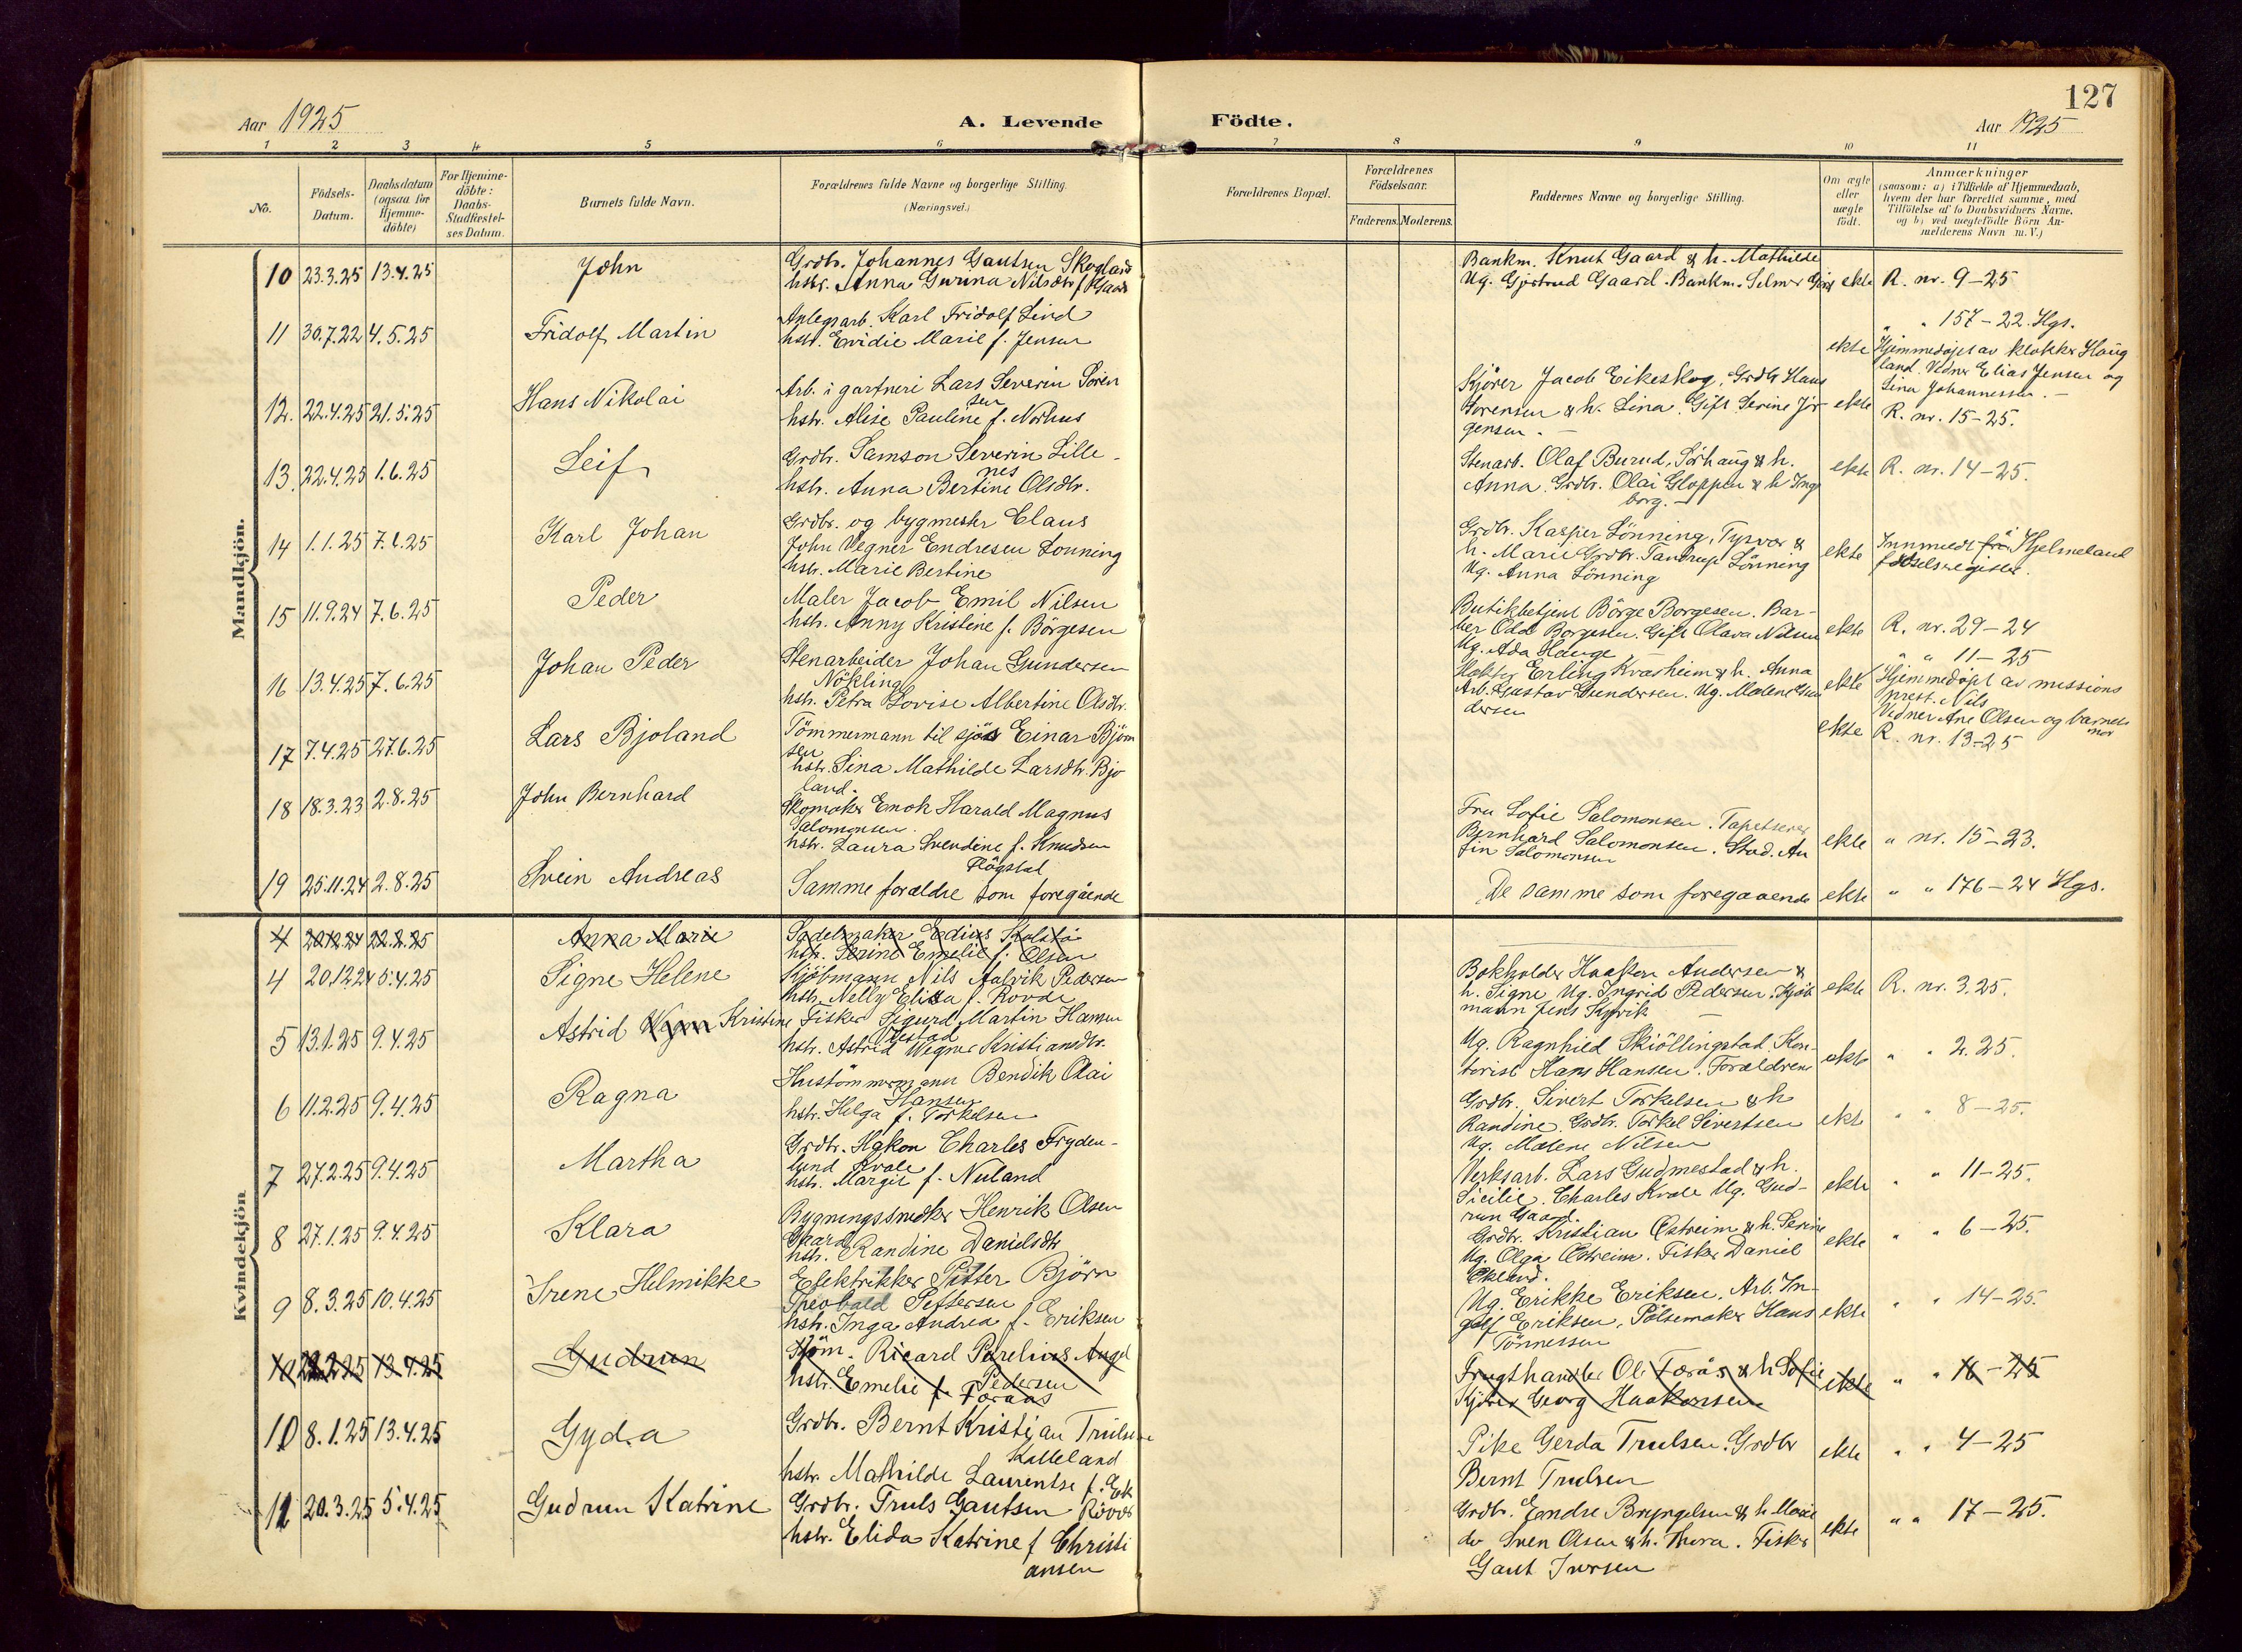 127
Aar 1925
A. Levende Födte.
Aar 1925
1 2 3 4 5 6 7 8 9 10 11
No.
Födsels-
Datum.
Daabsdatum
(ogsaa for
Hjemme-
döbte)
For Hjemme-
döbte:
Daabs-
Stadfestel-
ses Datum.
Barnets fulde Navn.
Forældrenes fulde Navne og borgerlige Stilling.
(Næringsvei.)
Forældrenes Bopæl.
Forældrenes
Födselsaar.
Faderens. Moderens.
Faddernes Navne og borgerlige Stilling.
Om ægte
eller
uægte
födt.
Anmærkninger
(saasom: a) i Tilfælde af Hjemmedaab,
hvem der har forrettet samme, med
Tilföielse af to Daabsvidners Navne.
og b) ved uægtefödte Börn An-
melderens Navn m. V.)
Mandkjön.
10 23.3.25 13.4.25 John
Grdbr. Johannes Gautsen Skogland
hstr. Anna Gurina Nilsdtr f. Gaard
Bankm. Knut Gaard & h. Mathilde
Ug. Gjertrud Gaard. Bankm. Selmer
ekte R. nr. 9-25
11 30.7.22 4.5.25 Fridolf Martin
Anlegsarb. Karl Fridolf Lind
hstr. Evidie Marie f. Jensen
ekte
" " 157-22 Hgs.
Hjemmedøpt av klokker Haug
land. Vidner Elias Jensen og
Lina Johannessen.-
12. 22.4.25 21.5.25 Hans Nikolai
Arb. i gartneri Lars Severin Sören
sen
hstr. Alise Pauline f. Norhus
Kjörer Jacob Eikeskog, Grdbr Hans
Sorensen & h. Lina. Gift Serine Jör
gensen.-
ekte R. nr. 15-25.
13. 22.4.25 1.6.25 Leif
Grdbr. Samson Severin Lille-
nes
hstr. Anna Bertine Olsdtr.
Stenarb. Olaf Burud, Sörhaug & h.
Anna. Grdbr. Olai Gloppen & h Inge
borg.-
ekte R. nr. 14-25.
14 1.1.25 7.6.25 Karl Johan
Grdbr. og bygmester Claus
John Wegner Endresen Lonning
hstr. Marie Bertine
Grdbr. Kasper Lönning, Tysvær &
h. Marie Grdbr. Tandrup Lönning
Ug. Anna Lönning
ekte
Innmeldt frå Hjelmeland
fødselsregister.
15 11.9.24 7.6.25 Peder
Maler Jacob Emil Nilsen
hstr. Anny Kristine f. Börgesen
Butikbetjent Börge Borgesen. Bar-
ber Odd Borgesen. Gift Olava Nilsen
Ug. Ada Hauge
ekte R. nr. 29-24
16 13.4.25 7.6.25 Johan Peder
Stenarbeider Johan Gundersen
Nökling
hstr. Petra Lovise Albertine Olsdtr.
Erling Kvasheim & h. Anna
Arb. Gustav Gundersen. Ug. Malene Gun
dersen
ekte
" " 11-25
Hjemmedøpt av missions
prest. Nils
Vidner Ane Olsen og barnets
mor
17 7.4.25 27.6.25 Lars Bjoland
Tömmermann til sjös Einar Björn
sen
hstr. Sina Mathilde Larsdtr. Bjo
land.
ekte R. nr. 13-25
18 18.3.23 2.8.25 John Bernhard
Skomaker Enok Harald Magnus
Salomonsen.
hstr. Laura Svendine f. Knudsen
Flögstad
Fru Sofie Salomonsen. Tapetserer
Bernhard Salomonsen. Stud. An
fin Salomonsen
ekte " nr. 15-23.
19 25.11.24 2.8.25 Svein Andreas
Samme forældre som foregående
De samme som foregaaende
ekte " " 176-24 Hgs.
Kvindekjön
4 20.12.24 22.2.25 Anna Marie
Sadelmaker Edius Kolstö
hstr. Serine Emelie f. Olsen
4 20.12.24 5.4.25 Signe Helene
Kjöbmann Nils Aalvik Pedersen
hstr. Nelly Elisa f. Rovde
Bokholder Haakon Andersen &
h. Signe Ug. Ingrid Pedersen. Kjöb
mann Jens Kyvik
ekte R. nr. 3.25.
5 13.1.25 9.4.25 Astrid Wegner Kristine
Fisker Sigurd Martin Hansen
hstr. Astrid Wegner Kristiansdtr.
Ug. Ragnhild Skiöllingstad. Kon-
torist Hans Hansen. Forældrene
ekte " " 2.25.
6 11.2.25 9.4.25 Ragna
Hustömmermann Bendik Olai
Hansen
hstr. Helga f. Torkelsen
Grdbr. Sivert Torkelsen & h
Randine. Grdbr. Torkel Sivertsen
Ug. Malene Nilsen
ekte " " 8-25.
7 27.2.25 9.4.25 Martha
Grdbr. Hakon Charles Fryden-
lund Kvale
hstr. Margit f. Nuland
Verksarb. Lars Gudmestad & h.
Sicilie. Charles Kvale Ug. Gud-
run Gaard.
ekte " " 11-25.
8 27.1.25 9.4.25 Klara
Bygningssnedker Henrik Olsen
Gaard
hstr. Randine Danielsdtr
Grdbr. Kristian Östreim & h. Serine
Ug. Olga Östreim. Fisker Daniel
Ökland.
ekte " " 6-25.
9 8.3.25 10.4.25 Irene Helmikke
Elektrikker Petter Björn
Theobald Pettersen
hstr. Inga Andrea f. Eriksen
Ug. Erikke Eriksen. Arb. In-
golf Eriksen, Pölsemaker Hans
Tönnessen
ekte " " 14-25.
10 22.2.25 13.4.25 Gudrun
Ricard Parelius Angel
Pedersen
hstr. Emelie f. Föraas
Frugthandler Ole Förås & h Sofie
Kjörer Georg Haakonsen
ekte " " 16-25
10 8.1.25 13.4.25 Gyda
Grdbr. Bernt Kristian Trulsen
Kalleland
hstr. Mathilde Laurentse f. Eek
Pike Gerda Trulsen. Grdbr
Bernt Trulsen
ekte " " 4-25
11 20.3.25 5.4.25 Gudrun Katrine
Grdbr. Truls Gautsen Rövær
hstr. Elida Katrine f Christi
ansen
Grdbr. Endre Bryngelsen & h Marie
do Sven Olsen & h. Thora. Fisker
Gaut Iversen
ekte " " 17-25.